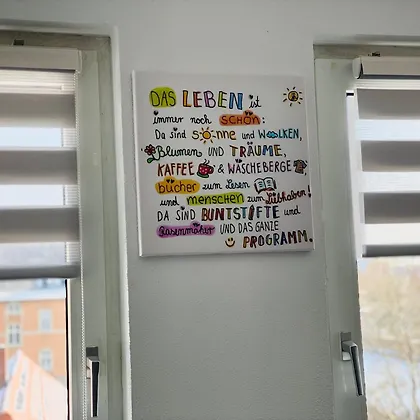 DAS LEBEN ist
immer noch SCHÖN:
Da sind SONNE und WOLKEN,
Blumen UND TRÄUME,
KAFFEE & WÄSCHEBERGE
bücher zum Lesen
und menschen zum Liebhaben!
DA SIND BUNTSTIFTE und
Rasenmäher UND DAS GANZE
PROGRAMM.